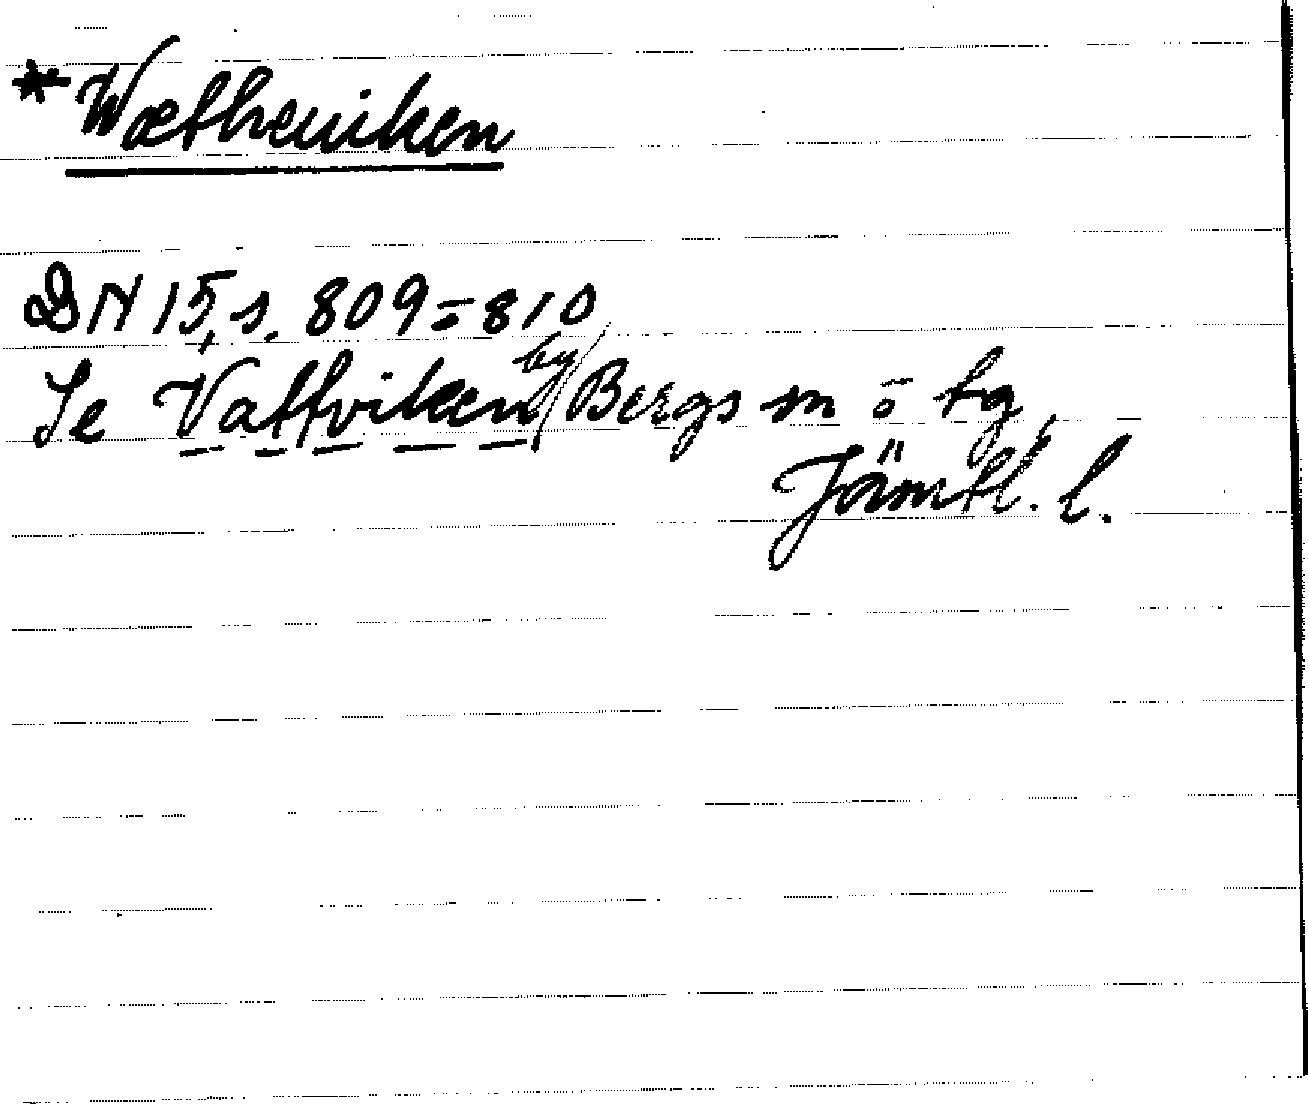 *Wætheuiken
DN 15, s. 809-810
Se Vattviken by Bergs sn o tg,
Jämtl. l.